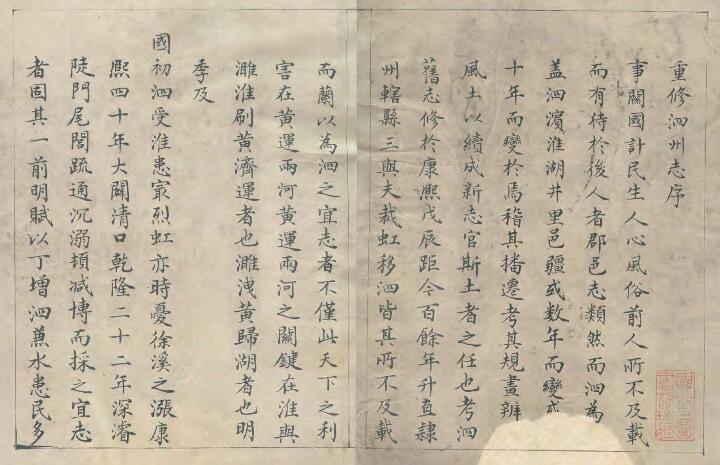 重修泗州志序
事關國計民生人心風俗前人所不及載
而有待於後人者郡邑志類然而泗為
盖泗濱淮湖井里邑疆或数年而變或
十年而變於焉稽其播遷考其規畫辨
風土以續成新志官斯土者之任也考泗
舊志修於康熙戊辰距今百餘年升直隸
州轄縣三與夫裁虹移泗皆其所不及載
而蘭以為泗之宜志者不僅此天下之利
害在黄運兩河黄運兩河之關鍵在淮與
濉淮刷黄濟運者也濉洩黄歸湖者也明
季及
國初泗受淮患㝡烈虹亦時憂徐溪之漲康
熙四十年大闢清口乾隆二十二年深濬
陡門尾閭疏通沉溺頓减博而採之宜志
者固其一前明賦以丁增泗蕙水患民多